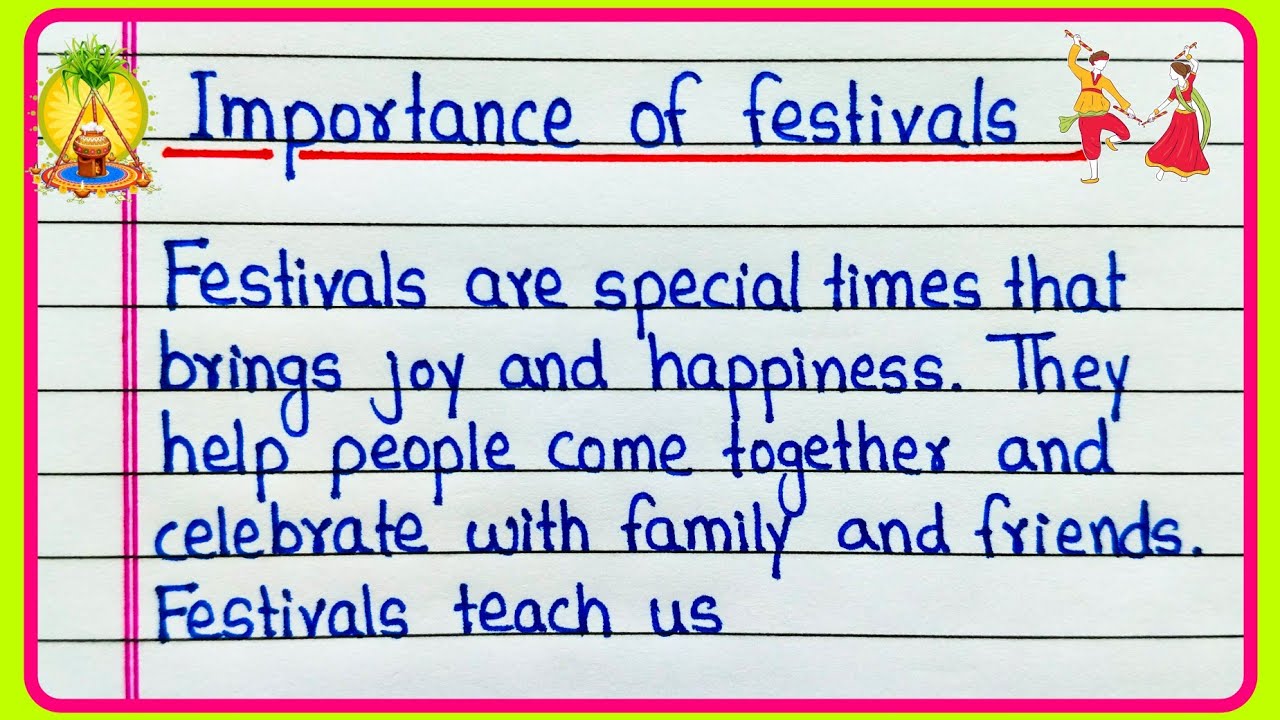 Importance of festivals
Festivals are special times that
brings joy and happiness. They
help people come together and
celebrate with family and friends.
Festivals teach us